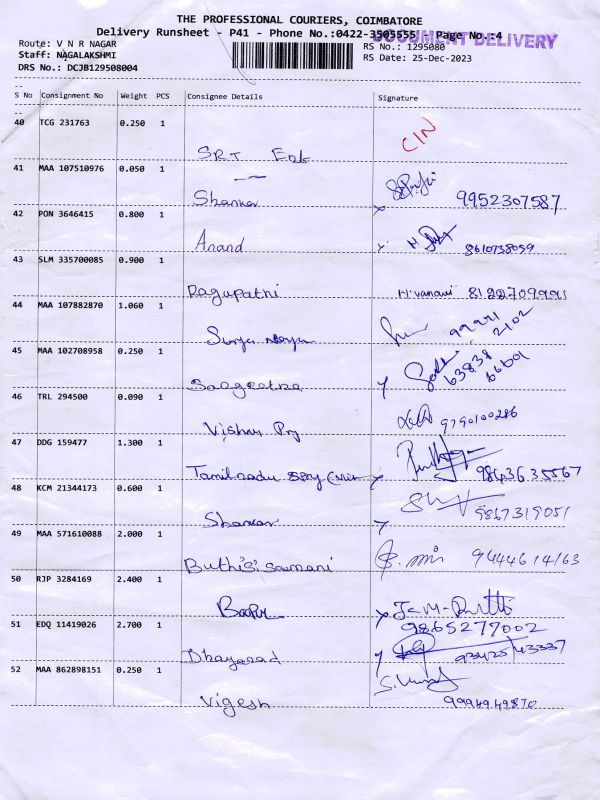 THE PROFESSIONAL COURIERS, COIMBATORE
Delivery Runsheet - P41 - Phone No.:0422-3505555 Page No.:4
DOCUMENT DELIVERY
Route: V N R NAGAR RS No.: 1295080
Staff: NAGALAKSHMI RS Date: 25-Dec-2023
DRS No.: DCJB129508004
S No Consignment No Weight PCS Consignee Details Signature
40 TCG 231763 0.250 1
CIN
SRT
41 MAA 107510976 0.050 1
Shankar 9952307587
42 PON 3646415 0.800 1
Anand 8610738059
43 SLM 335700085 0.900 1
Ragupathi M.Vanavi 8122709991
44 MAA 107882870 1.060 1
Surya
45 MAA 102708958 0.250 1
Sangeetha 63838 66601
46 TRL 294500 0.090 1
Vishnu 9790100286
47 DDG 159477 1.300 1
Tamilnadu 98436 35567
48 KCM 21344173 0.600 1
Shankar 9867319051
49 MAA 571610088 2.000 1
9444614163
50 RJP 3284169 2.400 1
9865277002
51 EDQ 11419026 2.700 1
52 MAA 862898151 0.250 1
Vigesh 9994949870